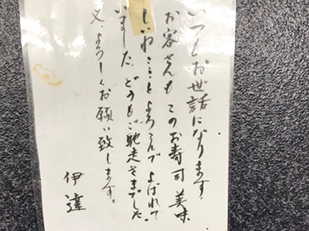 いつもお世話になります
お客さんも このお寿司 美味
しいねこことよろこんでよばれて
いました、どうもご馳走さまでした
又、よろしくお願い致します。
伊達